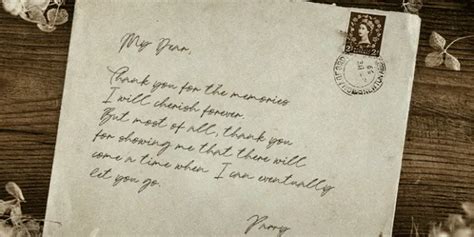 My Dear,
Thank you for the memories
I will cherish forever.
But most of all, thank you
for showing me that there will
come a time when I can eventually
let you go.